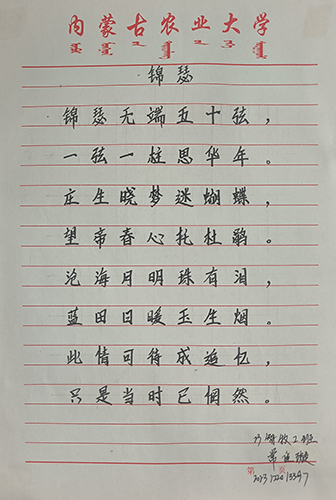 内蒙古农业大学
锦瑟
锦瑟无端五十弦，
一弦一柱思华年。
庄生晓梦迷蝴蝶，
望帝春心托杜鹃。
沧海月明珠有泪，
蓝田日暖玉生烟。
此情可待成追忆，
只是当时已惘然。
班
第 页